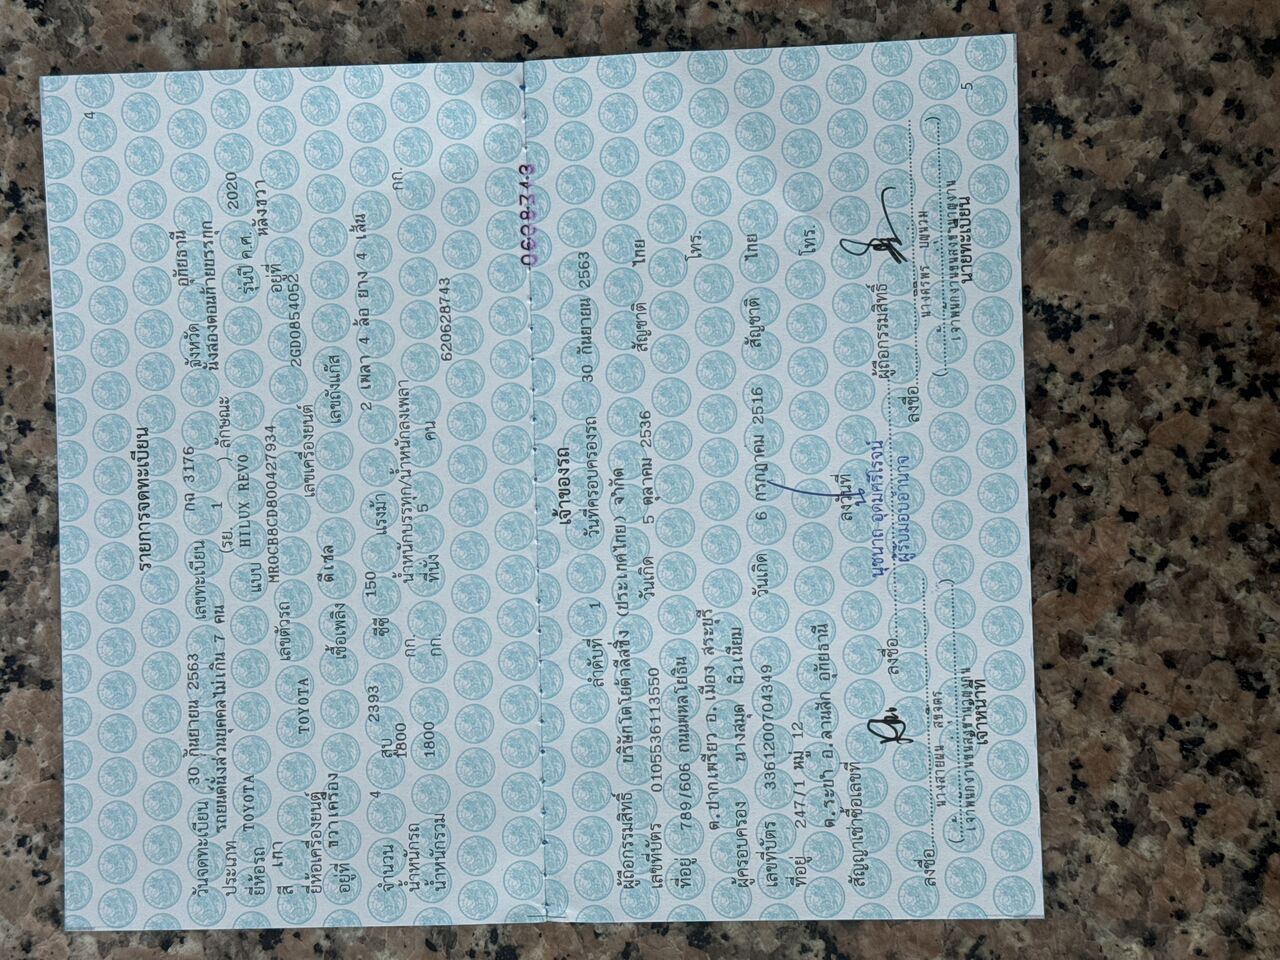 4
รายการจดทะเบียน
วันจดทะเบียน 30 กันยายน 2563 เลขทะเบียน กฉ 3176 จังหวัด อุทัยธานี
ประเภท รถยนต์นั่งส่วนบุคคลไม่เกิน 7 คน (รย. 1 ) ลักษณะ นั่งสองตอนท้ายบรรทุก
ยี่ห้อรถ TOYOTA แบบ HILUX REVO รุ่นปี ค.ศ. 2020
สี เทา เลขตัวรถ MR0CB8CD800427934 อยู่ที่ หลังขวา
ยี่ห้อเครื่องยนต์ TOYOTA เลขเครื่องยนต์ 2GD0854052
อยู่ที่ ขวาเครื่อง เชื้อเพลิง ดีเซล เลขถังแก๊ส
จำนวน 4 สูบ 2393 ซีซี 150 แรงม้า 2 เพลา 4 ล้อ ยาง 4 เส้น
น้ำหนักรถ 1800 กก. น้ำหนักบรรทุก/น้ำหนักลงเพลา กก.
น้ำหนักรวม 1800 กก. ที่นั่ง 5 คน 620628743
เจ้าของรถ
ลำดับที่ 1 วันที่ครอบครองรถ 30 กันยายน 2563
ผู้ถือกรรมสิทธิ์ บริษัทโตโยต้าลีสซิ่ง (ประเทศไทย) จำกัด
เลขที่บัตร 0105536113550 วันเกิด 5 ตุลาคม 2536 สัญชาติ ไทย
ที่อยู่ 789/606 ถนนพหลโยธิน
ต.ปากเพรียว อ.เมือง สระบุรี โทร.
ผู้ครอบครอง นางสมุด ผิวเนียม
เลขที่บัตร 3361200704349 วันเกิด 6 กรกฎาคม 2516 สัญชาติ ไทย
ที่อยู่ 247/1 หมู่ 12
ต.ระบำ อ.ลานสัก อุทัยธานี โทร.
สัญญาเช่าซื้อเลขที่ ลงวันที่
ลงชื่อ ผู้ถือกรรมสิทธิ์
นุชนาถ อุดมศรีโรจน์
ผู้รับมอบอำนาจ
ลงชื่อ ลงชื่อ
(เจ้าพนักงานขนส่งชำนาญงาน) (เจ้าพนักงานขนส่งชำนาญงาน)
เจ้าหน้าที่ นายทะเบียน
5